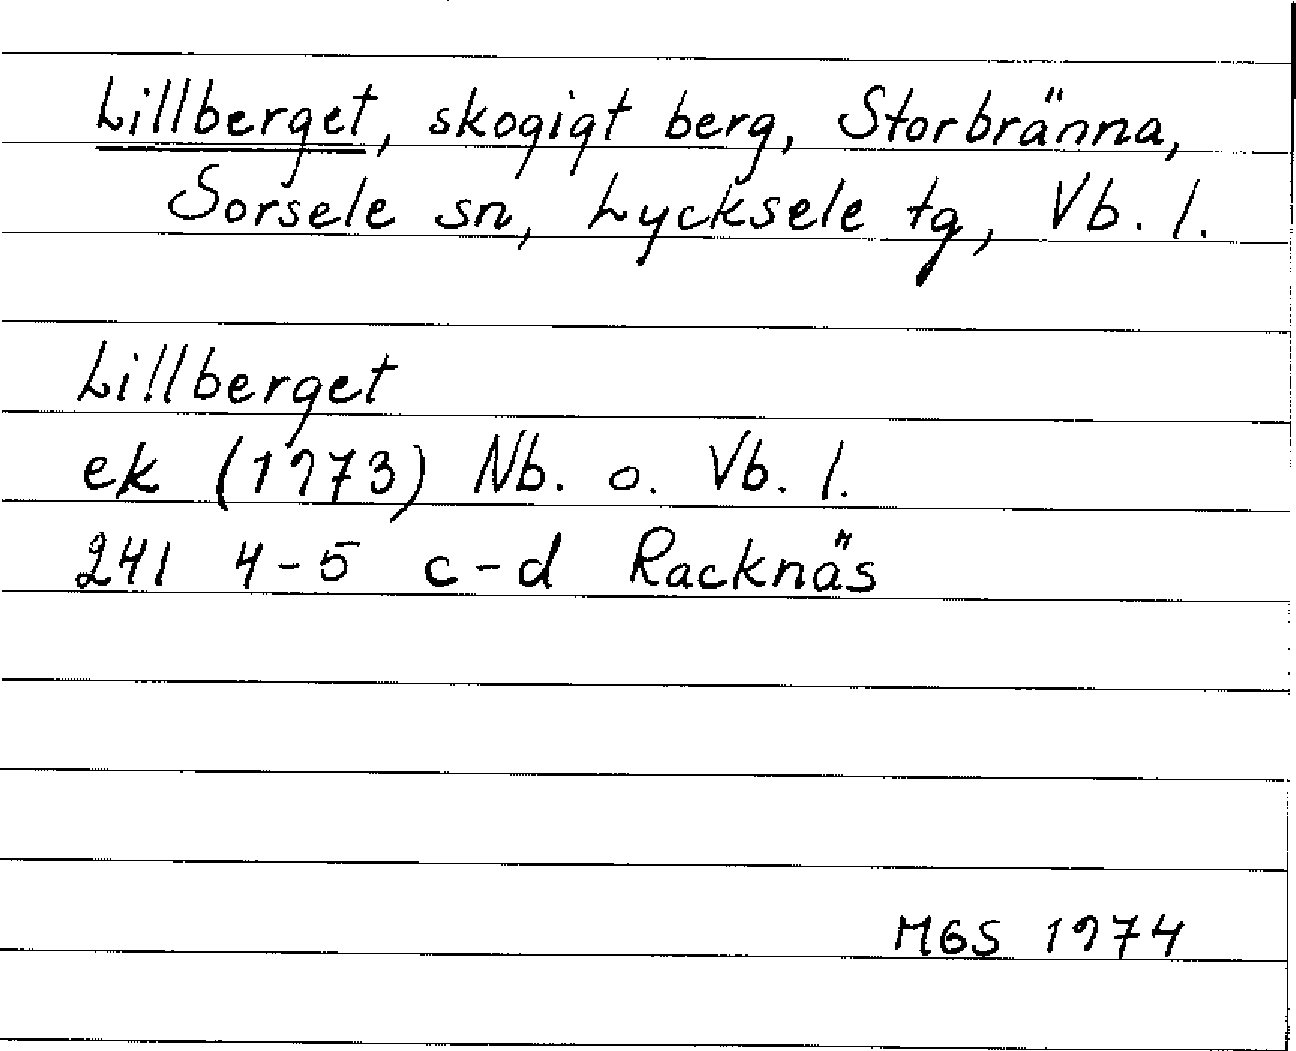 Lillberget, skogigt berg, Storbränna,
Sorsele sn, Lycksele tg, Vb. l.
Lillberget
ek (1973) Nb. o. Vb. l.
241 4-5 c-d Racknäs
MGS 1974